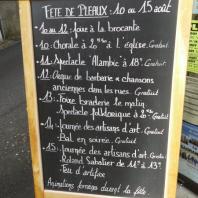 FÊTE DE PLEAUX : 10 au 15 août
10 au 12 : Foire à la brocante
10 : Chorale à 20h30 à l'église. Gratuit
11 : Spectacle "Alambic" à 18h. Gratuit
12 : Orgue de barbarie & chansons
anciennes dans les rues. Gratuit
13 : Foire braderie le matin
Spectacle folklorique à 20h30
Gratuit
14 : Journée des artisans d'art. Gratuit
Bal en soirée. Gratuit
15 : Journée des artisans d'art. Gratuit
Roland Sabatier de 11h à 13h.
Feu d'artifice
Animations foraines durant la fête